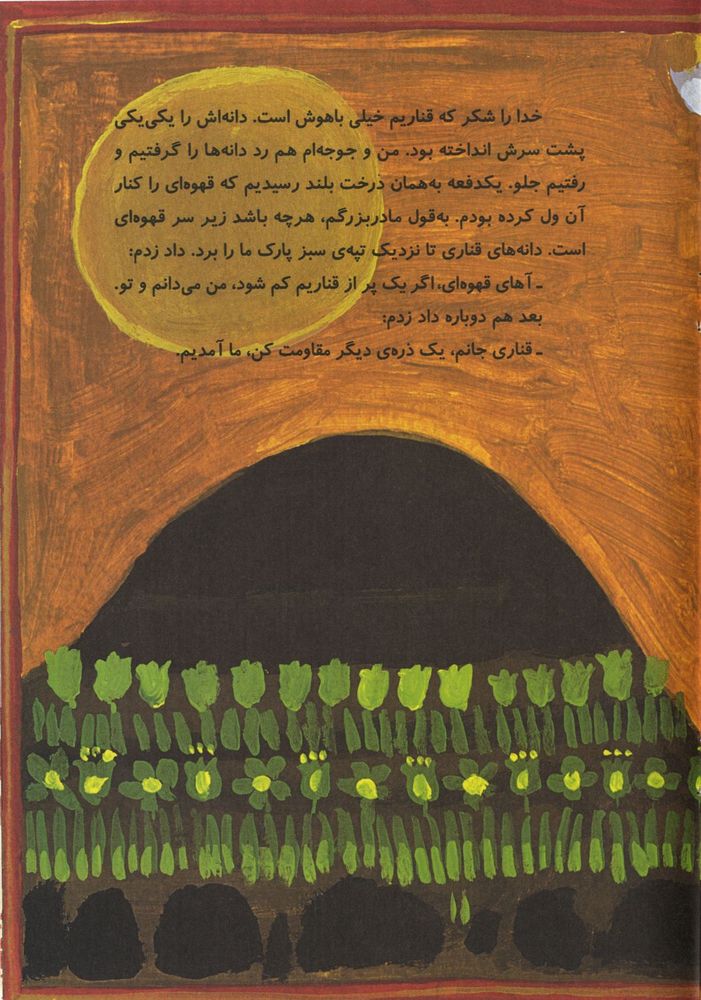 خدا را شکر که قناریم خیلی باهوش است. دانه‌اش را یکی‌یکی
پشت سرش انداخته بود. من و جوجه‌ام هم رد دانه‌ها را گرفتیم و
رفتیم جلو. یکدفعه به‌همان درخت بلند رسیدیم که قهوه‌ای را کنار
آن ول کرده بودم. به‌قول مادربزرگم، هرچه باشد زیر سر قهوه‌ای
است. دانه‌های قناری تا نزدیک تپه‌ی سبز پارک ما را برد. داد زدم:
ـ آهای قهوه‌ای، اگر یک پر از قناریم کم شود، من می‌دانم و تو.
بعد هم دوباره داد زدم:
ـ قناری جانم، یک ذره‌ی دیگر مقاومت کن، ما آمدیم.